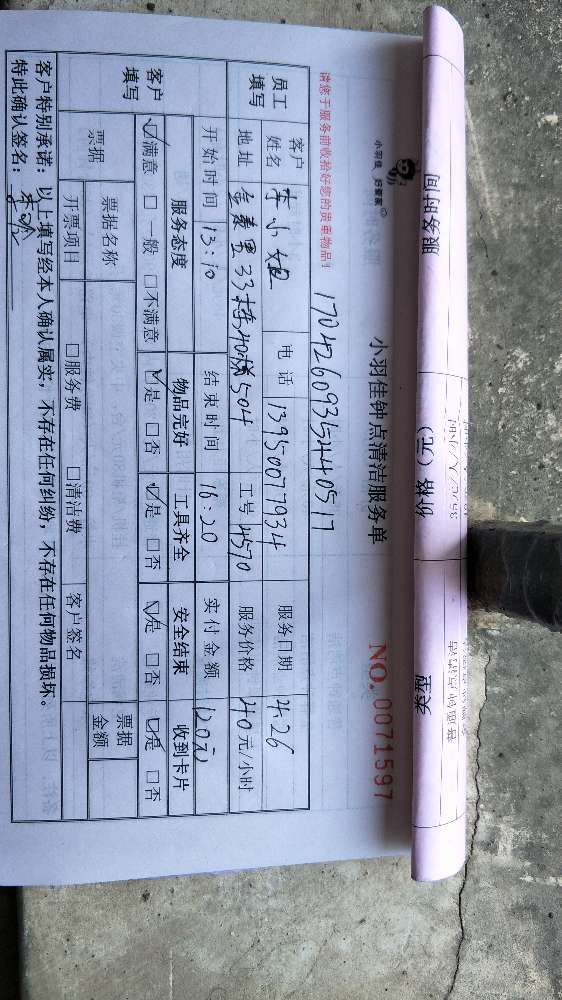 服务时间 价格（元） 类型
小羽佳 好管家
小羽佳钟点清洁服务单 NO. 0071597
请您于服务前收拾好您的贵重物品！
1704260935440517
员工填写 客户姓名 李小姐 电话 13950077934 服务日期 4.26
地址 金泰里33栋40梯504 工号 4570 服务价格 40元/小时
开始时间 13:10 结束时间 16:20 实付金额 120元
客户填写 服务态度 物品完好 工具齐全 安全结束 收到卡片
☑满意 □一般 □不满意 ☑是 □否 ☑是 □否 ☑是 □否 ☑是 □否
票据 票据名称 票据金额
开票项目 □服务费 □清洁费 客户签名
客户特别承诺：以上填写经本人确认属实，不存在任何纠纷，不存在任何物品损坏。
特此确认签名：